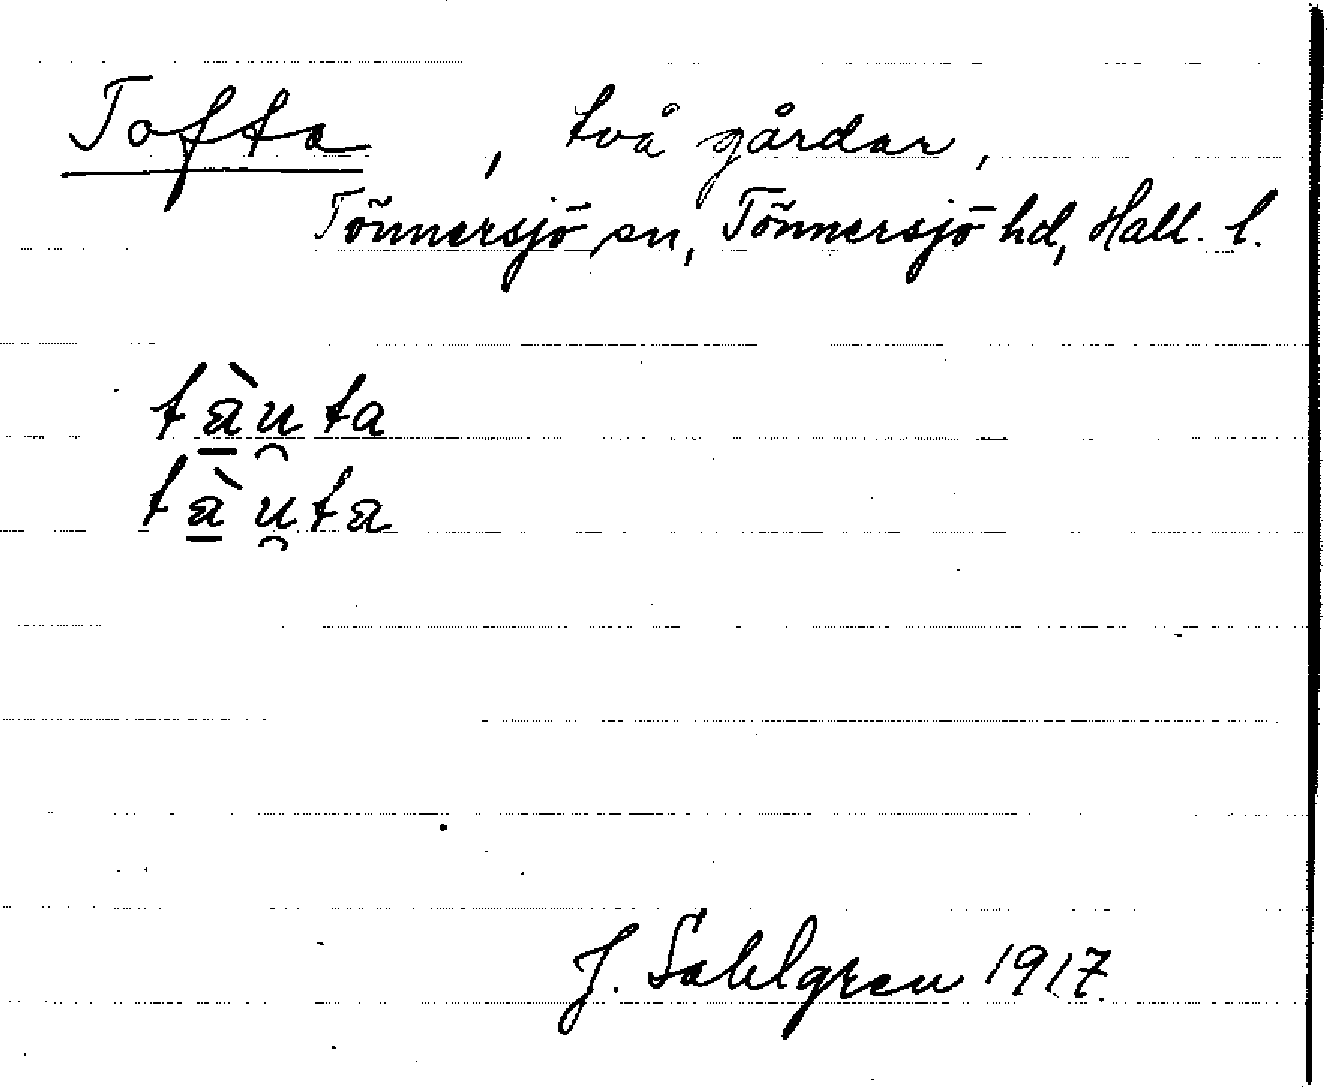 Tofta, två gårdar,
Tönnersjö sn, Tönnersjö hd, Hall. l.
tà̱u̯ta
tà̱u̯ta
J. Sahlgren 1917.